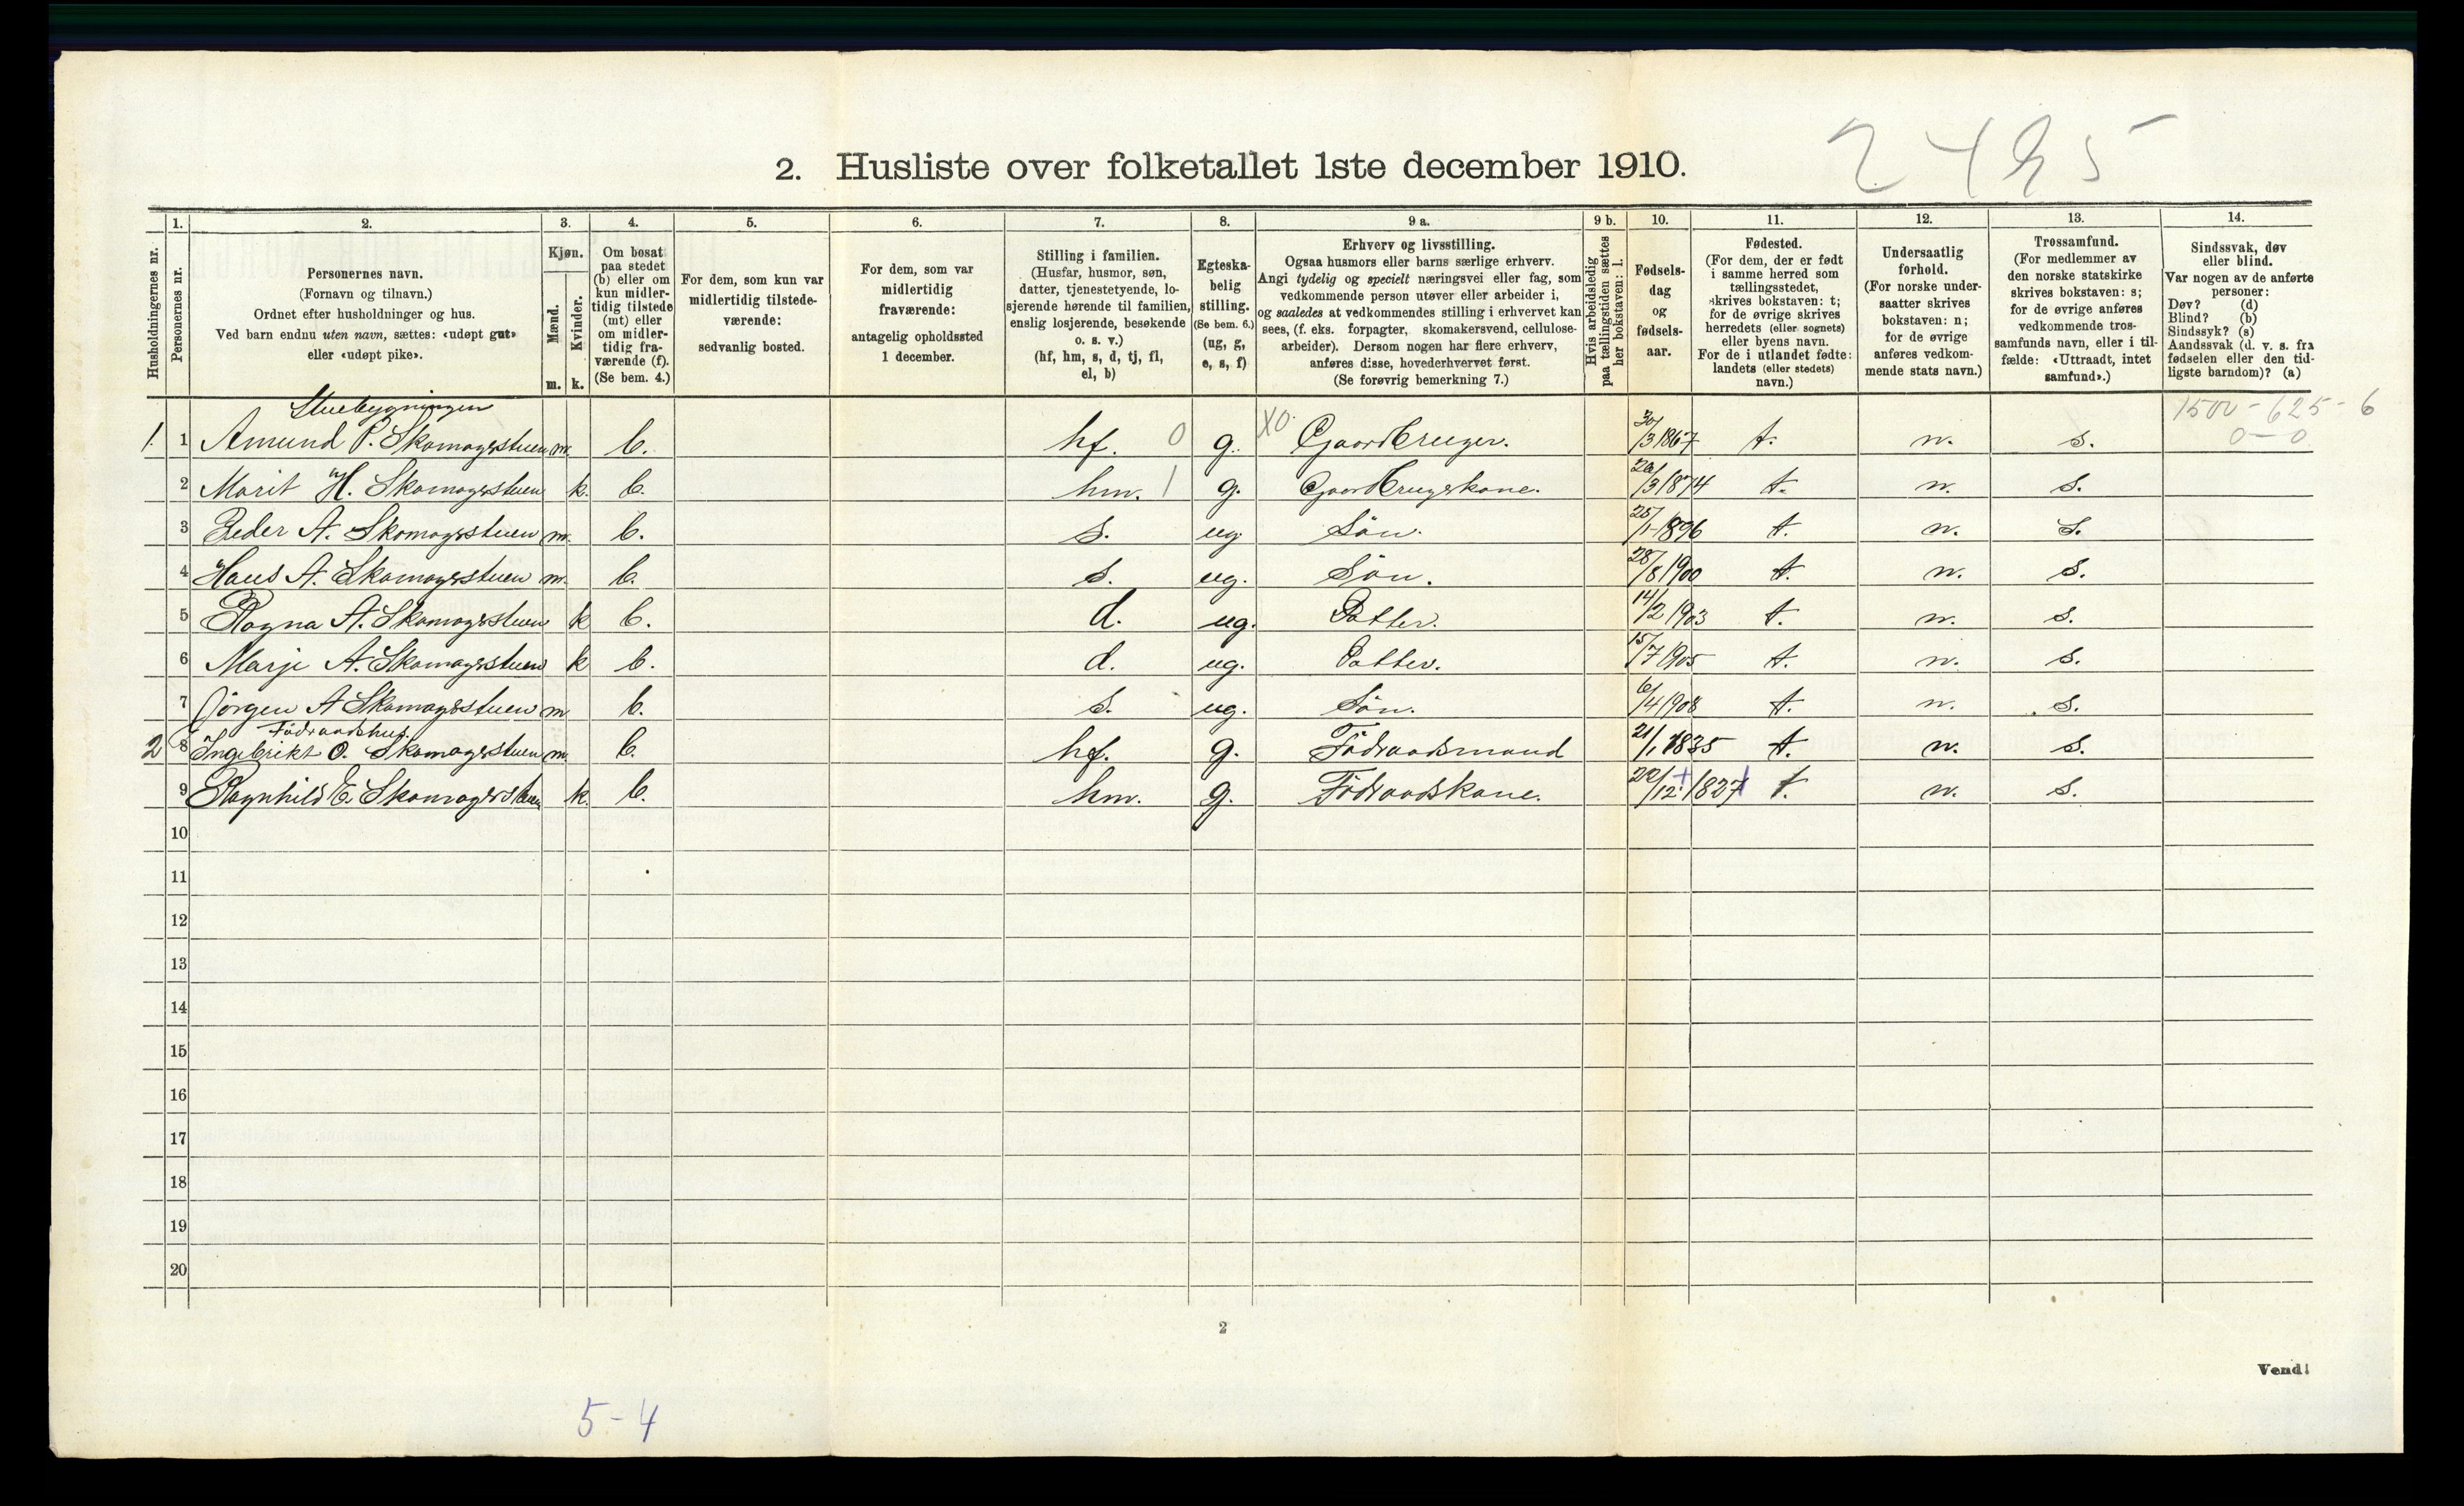 2485
2. Husliste over folketallet 1ste december 1910.
Husholdningernes nr.
1. Personernes nr.
2. Personernes navn.
(Fornavn og tilnavn.)
Ordnet efter husholdninger og hus.
Ved barn endnu uten navn, sættes: «udøpt gut»
eller «udøpt pike».
3. Kjøn.
Mænd. Kvinder.
m. k.
4. Om bosat
paa stedet
(b) eller om
kun midler-
tidig tilstede
(mt) eller
om midler-
tidig fra-
værende (f).
(Se bem. 4.)
5. For dem, som kun var
midlertidig tilstede-
værende:
sedvanlig bosted.
6. For dem, som var
midlertidig
fraværende:
antagelig opholdssted
1 december.
7. Stilling i familien.
(Husfar, husmor, søn,
datter, tjenestetyende, lo-
sjerende hørende til familien,
enslig losjerende, besøkende
o. s. v.)
(hf, hm, s, d, tj, fl,
el, b)
8. Egteska-
belig
stilling.
(Se bem. 6.)
(ug, g,
e, s, f)
9 a. Erhverv og livsstilling.
Ogsaa husmors eller barns særlige erhverv.
Angi tydelig og specielt næringsvei eller fag, som
vedkommende person utøver eller arbeider i,
og saaledes at vedkommendes stilling i erhvervet kan
sees, (f. eks. forpagter, skomakersvend, cellulose-
arbeider). Dersom nogen har flere erhverv,
anføres disse, hovederhvervet først.
(Se forøvrig bemerkning 7.)
9 b. Hvis arbeidsledig
paa tællingstiden sættes
her bokstaven: l.
10. Fødsels-
dag
og
fødsels-
aar.
11. Fødested.
(For dem, der er født
i samme herred som
tællingsstedet,
skrives bokstaven: t;
for de øvrige skrives
herredets (eller sognets)
eller byens navn.
For de i utlandet fødte:
landets (eller stedets)
navn.)
12. Undersaatlig
forhold.
(For norske under-
saatter skrives
bokstaven: n;
for de øvrige
anføres vedkom-
mende stats navn.)
13. Trossamfund.
(For medlemmer av
den norske statskirke
skrives bokstaven: s;
for de øvrige anføres
vedkommende tros-
samfunds navn, eller i til-
fælde: «Uttraadt, intet
samfund».)
14. Sindssvak, døv
eller blind.
Var nogen av de anførte
personer:
Døv? (d)
Blind? (b)
Sindssyk? (s)
Aandssvak (d. v. s. fra
fødselen eller den tid-
ligste barndom)? (a)
Stuebygningen
1500 - 625 - 6
0 - 0
1. 1 Amund P. Skomagerstuen m. b. hf. 0 g. X0. Gaardbruger. 30/3 1867 t. n. s.
2 Marit H. Skomagerstuen k. b. hm. 1 g. Gaardbrugerkone. /3 1874 t. n. s.
3 Peder A. Skomagerstuen m. b. s. ug. Sön. 25/1 1896 t. n. s.
4 Hans A. Skomagerstuen m. b. s. ug. Sön. 28/8 1900 t. n. s.
5 Ragna A. Skomagerstuen k b. d. ug. Datter. 14/2 1903 t. n. s.
6 Marje A. Skomagerstuen k b. d. ug. Datter. 15/7 1905 t. n. s.
7 Jörgen A Skomagerstuen m b. s. ug. Sön. 6/4 1908 t. n. s.
Födraadshus.
2 8 Ingebrikt O. Skomagerstuen m. b. hf. g. Födraadsmand 21/1 1835 t. n. s.
9 Ragnhild E. Skomagerstuen k. b. hm. g. Födraadskone. /12 1827 t. n. s.
10
11
12
13
14
15
16
17
18
19
20
2
Vend!
5 - 4